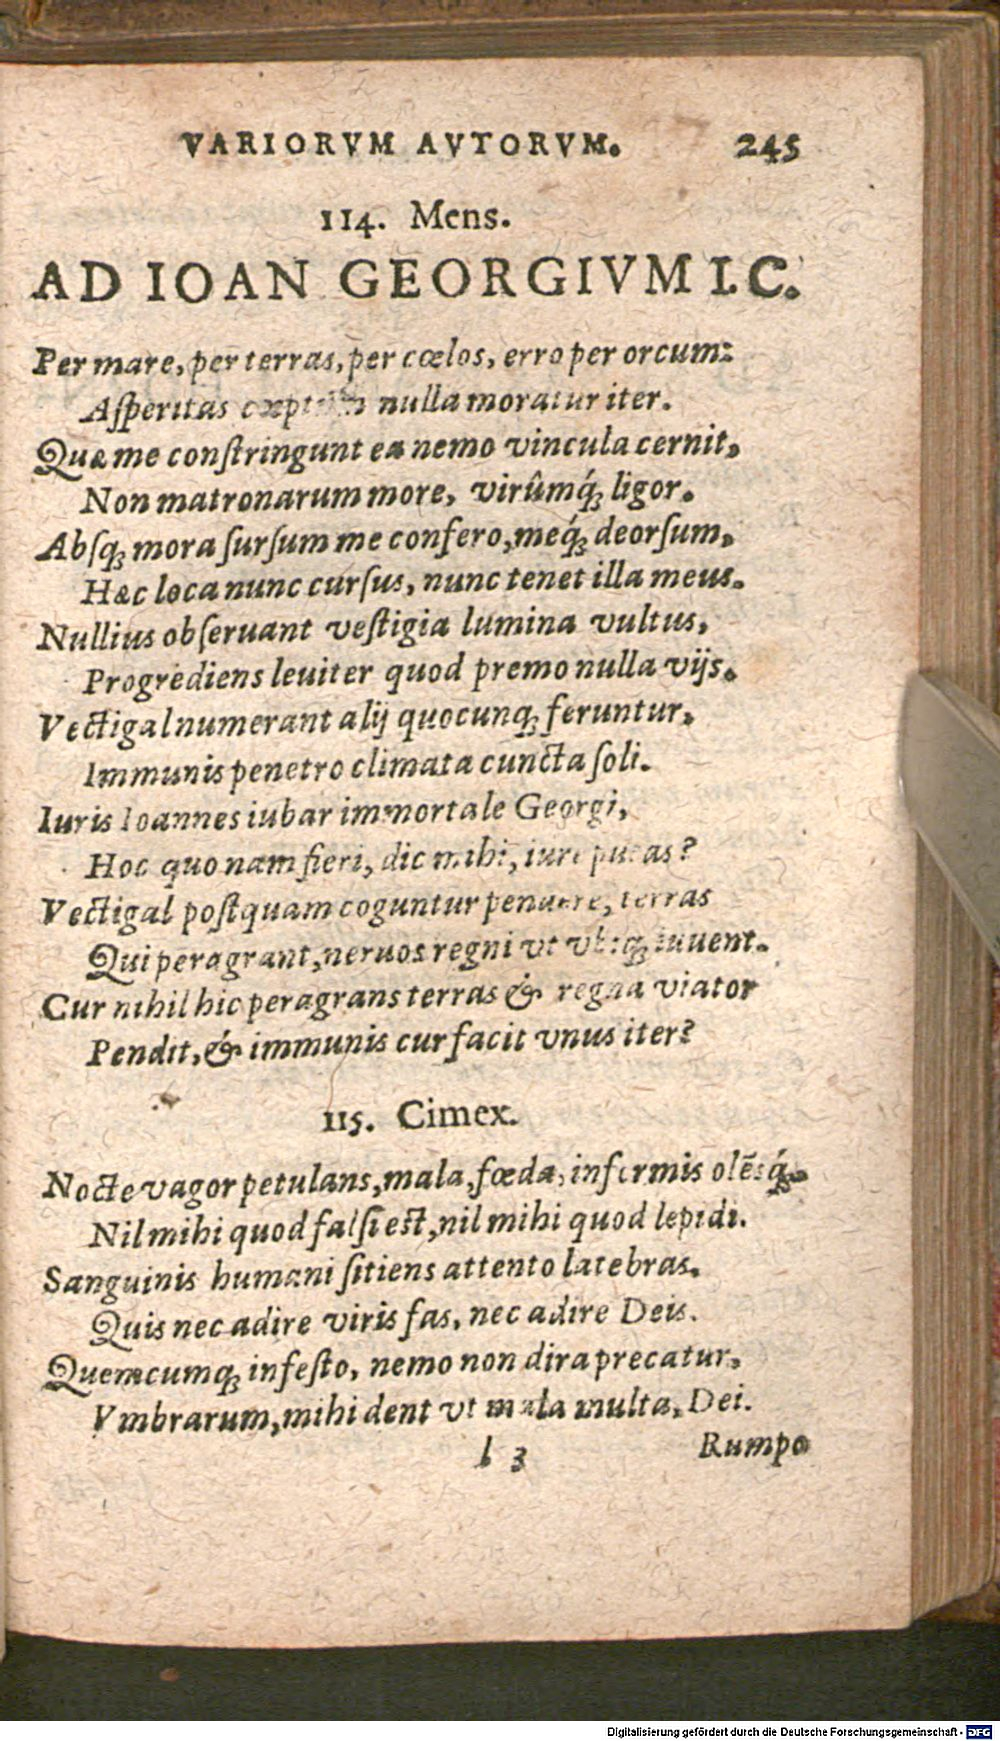 VARIORVM AVTORVM. 245
114. Mens.
AD IOAN GEORGIVM I.C.
Per mare, per terras, per cœlos, erro per orcum:
Aſperitas nulla moratur iter.
Quæ me conſtringunt ea nemo vincula cernit,
Non matronarum more, virûmq́ꝫ ligor.
Abſqꝫ mora ſurſum me confero, meq́ꝫ deorſum,
Hæc loca nunc curſus, nunc tenet illa meus.
Nullius obſeruant veſtigia lumina vultus,
Progrediens leuiter quod premo nulla vijs.
Vectigal numerant alij quocunqꝫ feruntur,
Immunis penetro climata cuncta ſoli.
Iuris Ioannes iubar immortale Georgi,
Hoc quo nam fieri, dic mihi, iure putas?
Vectigal poſtquam coguntur pendere, terras
Qui peragrant, neruos regni vt vbiqꝫ iuuent.
Cur nihil hic peragrans terras & regna viator
Pendit, & immunis cur facit vnus iter?
115. Cimex.
Nocte vagor petulans, mala, fœda, informis olēsq́ꝫ
Nil mihi quod falſi eſt, nil mihi quod lepidi.
Sanguinis humani ſitiens attento latebras,
Quis nec adire viris fas, nec adire Deis.
Quemcumqꝫ infeſto, nemo non dira precatur,
Vmbrarum, mihi dent vt mala multa, Dei.
l 3 Rumpo
Digitalisierung gefördert durch die Deutsche Forschungsgemeinschaft - DFG